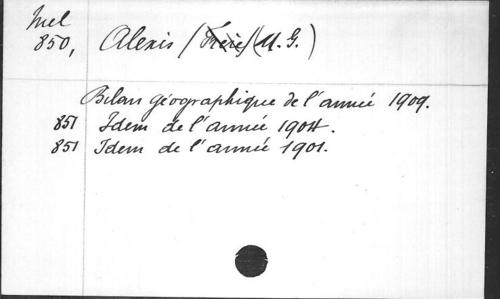 Mel
850, Alexis / (Frère) (M. G.)
Bilan géographique de l'année 1909.
851 Idem de l'année 1904.
851 Idem de l'année 1901.